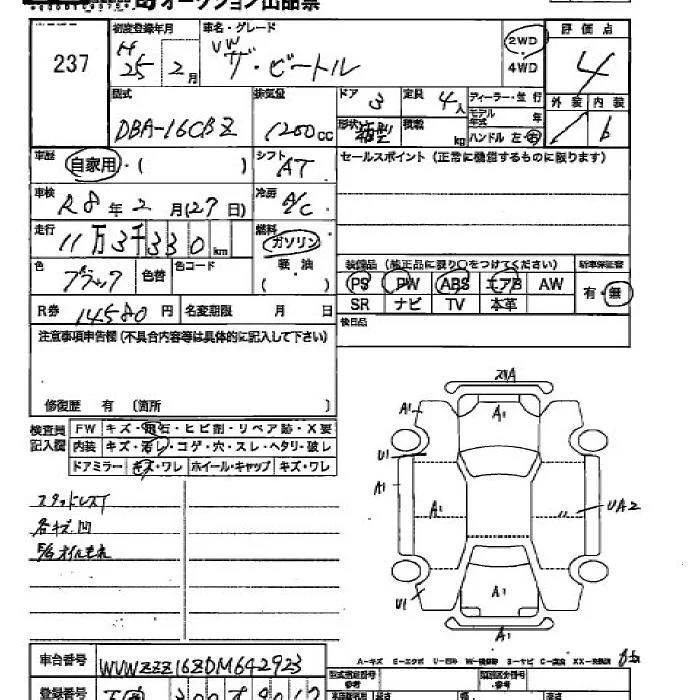 オークション出品票
237
初度登録年月 車名・グレード 2WD 4WD 評価点
H25年2月 VW ザ・ビートル 4
型式 排気量 ドア 3 定員 4人 ディーラー・並行 外装 内装
DBA-16CBZ 1200cc 形状 箱型 積載 kg モデル年式 年 ハンドル 左・右 b
車歴 自家用・( ) シフト AT セールスポイント (正常に機能するものに限ります)
車検 R8年2月(27日) 冷房 A/C
走行 11万3千330km 燃料 ガソリン 軽油 ( )
色 ブラック 色替 色コード 装備品 (純正品に限り○をつけてください) 新車保証書
PS PW ABS エアB AW 有・無
SR ナビ TV 本革
R券 14580円 名変期限 月 日 後日品
注意事項申告欄(不具合内容等は具体的に記入して下さい)
修復歴 有 (箇所 )
検査員記入欄 FW キズ・飛石・ヒビ割・リペア跡・X要
内装 キズ・汚レ・コゲ・穴・スレ・ヘタリ・破レ
ドアミラー キズ・ワレ ホイール・キャップ キズ・ワレ
スタッドレスタイヤ
各キズ凹
E/Gオイルモレ
A1
A1
U1
A1
A1
UA2
A1
U1
A1
車台番号 WVWZZZ16ZDM642923
A-キズ E-エクボ U-凹
登録番号 300
型式指定番号 類別区分番号